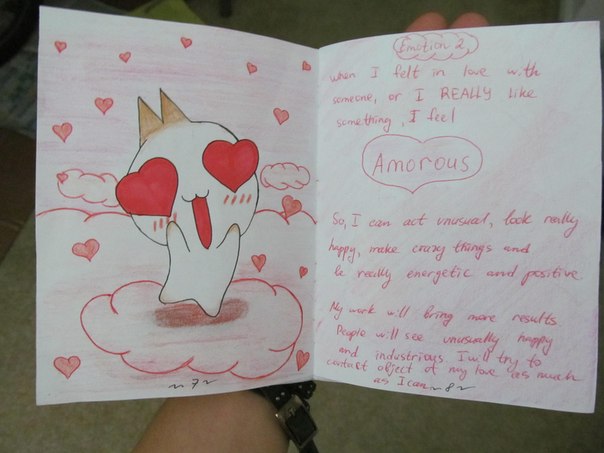 ~7~
Emotion 2
When I felt in love with
someone, or I REALLY like
something, I feel
Amorous
So, I can act unusual, look really
happy, make crazy things and
be really energetic and positive.
My work will bring more results.
People will see unusually happy
and industrious. I will try to
contact object of my love as much
as I can.
~8~